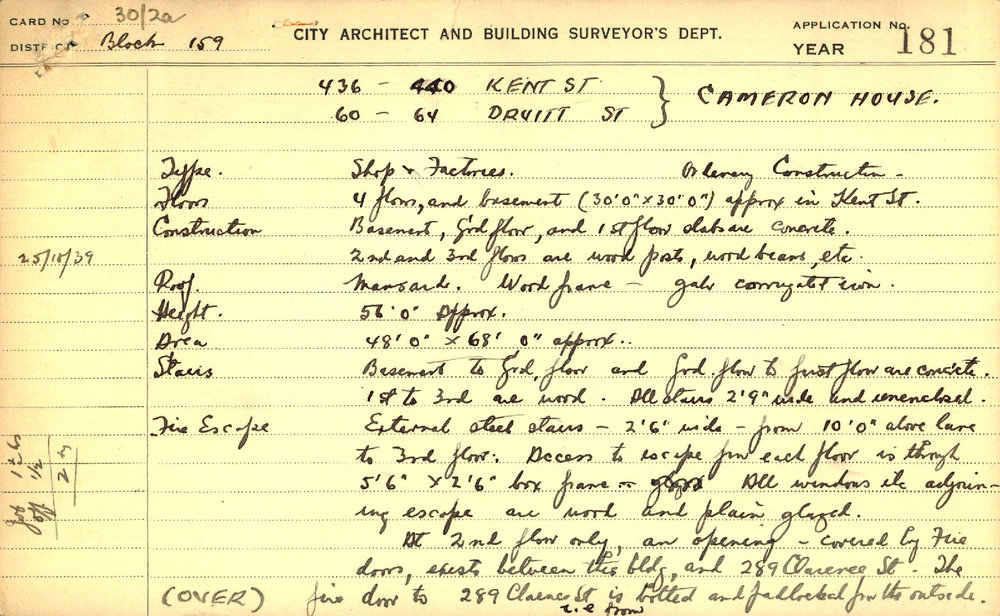 CARD No 30/2a
DISTRICT Block 159
CITY ARCHITECT AND BUILDING SURVEYOR'S DEPT.
APPLICATION No.
YEAR
181
436 - 440 KENT ST
60 - 64 DRUITT ST
} CAMERON HOUSE.
Type. Shop & Factories. Ordinary Construction -
Floors 4 floors, and basement (30'0"x30'0") approx in Kent St.
Construction Basement, Grd floor, and 1st floor slabs are concrete.
25/10/39 2nd and 3rd floors are wood posts, wood beams, etc.
Roof. Mansard. Wood frame - galv corrugated iron.
Height. 56'0" Approx.
Area 48'0" x 68'0" approx..
Stairs Basement to Grd. floor and Grd. floor to first floor are concrete.
1st to 3rd are wood. All stairs 2'9" wide and unenclosed.
Fire Escape External steel stairs - 2'6" wide - from 10'0" above lane
to 3rd floor. Access to escape from each floor is through
5'6" x 2'6" box frame All windows etc adjoin-
ing escape are wood and plain glazed.
At 2nd floor only, an opening - covered by Fire
doors, exists between this bldg, and 289 Clarence St. The
(OVER) fire door to 289 Clarence St is bolted and padlocked from the outside.
i.e from